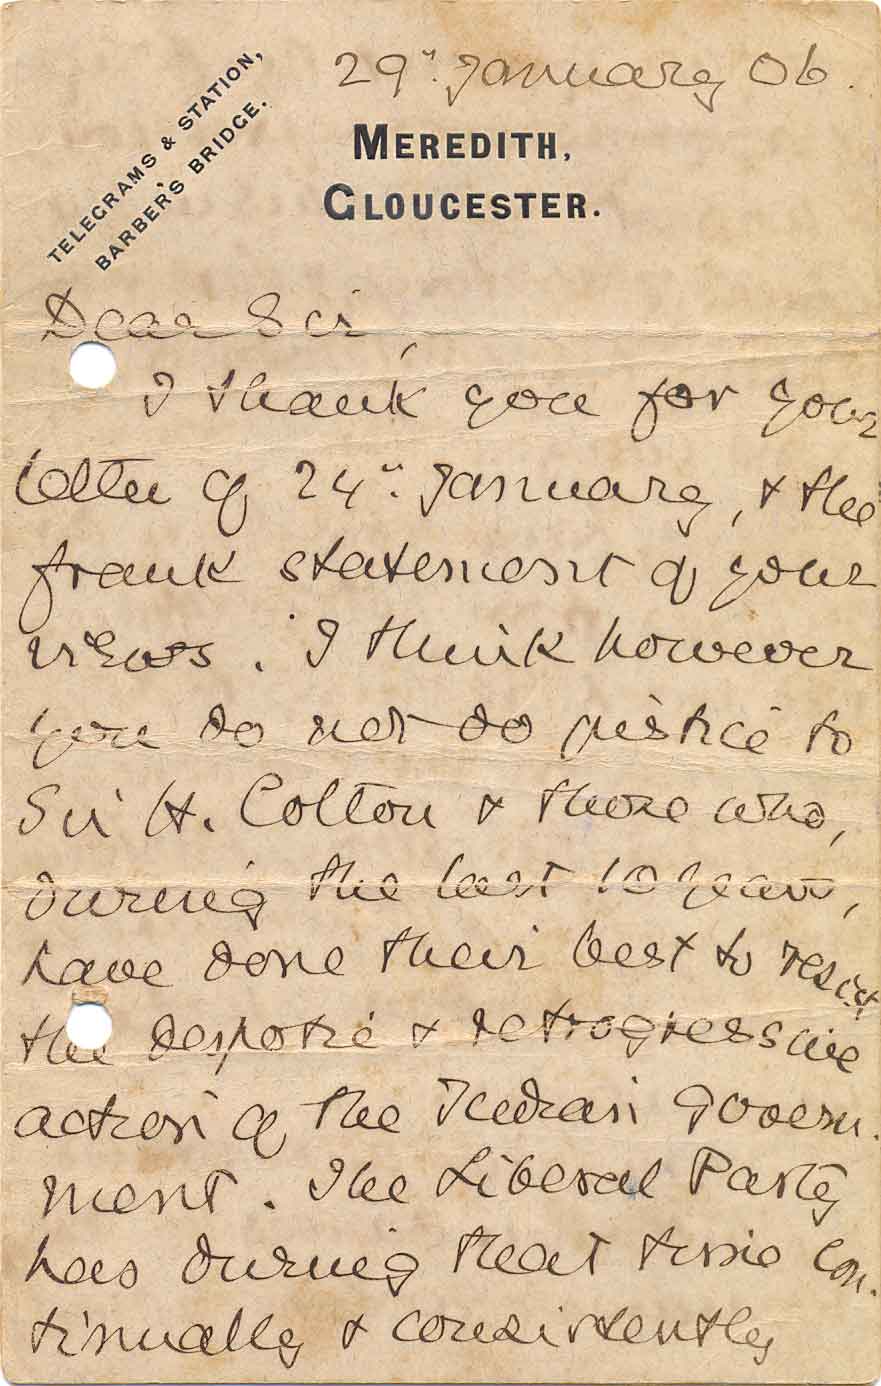 TELEGRAMS & STATION,
BARBER'S BRIDGE.
29th January 06.
MEREDITH,
GLOUCESTER.
Dear Sir,
I thank you for your
letter of 24th January, & the
frank statement of your
views. I think however
you do not do justice to
Sir H. Cotton & those who,
during the last 10 years,
have done their best to resist
the despotic & retrogressive
action of the Indian Govern-
ment. The Liberal Party
has during that time con-
tinually & consistently